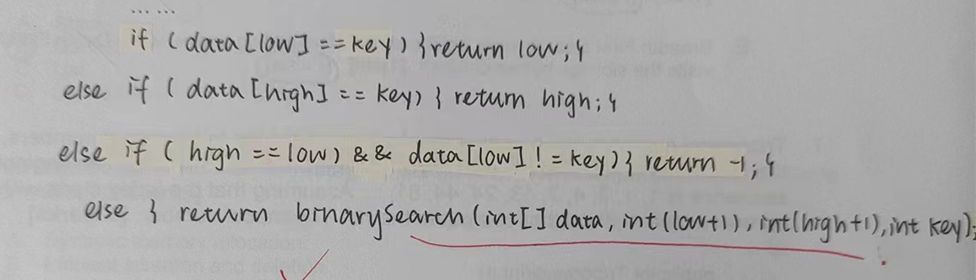 ... ...
if (data[low] == key) {return low;}
else if (data[high] == key) { return high;}
else if ( high == low) && data[low] != key) { return -1;}
else { return binarySearch (int[] data, int (low+1), int(high+1), int key);